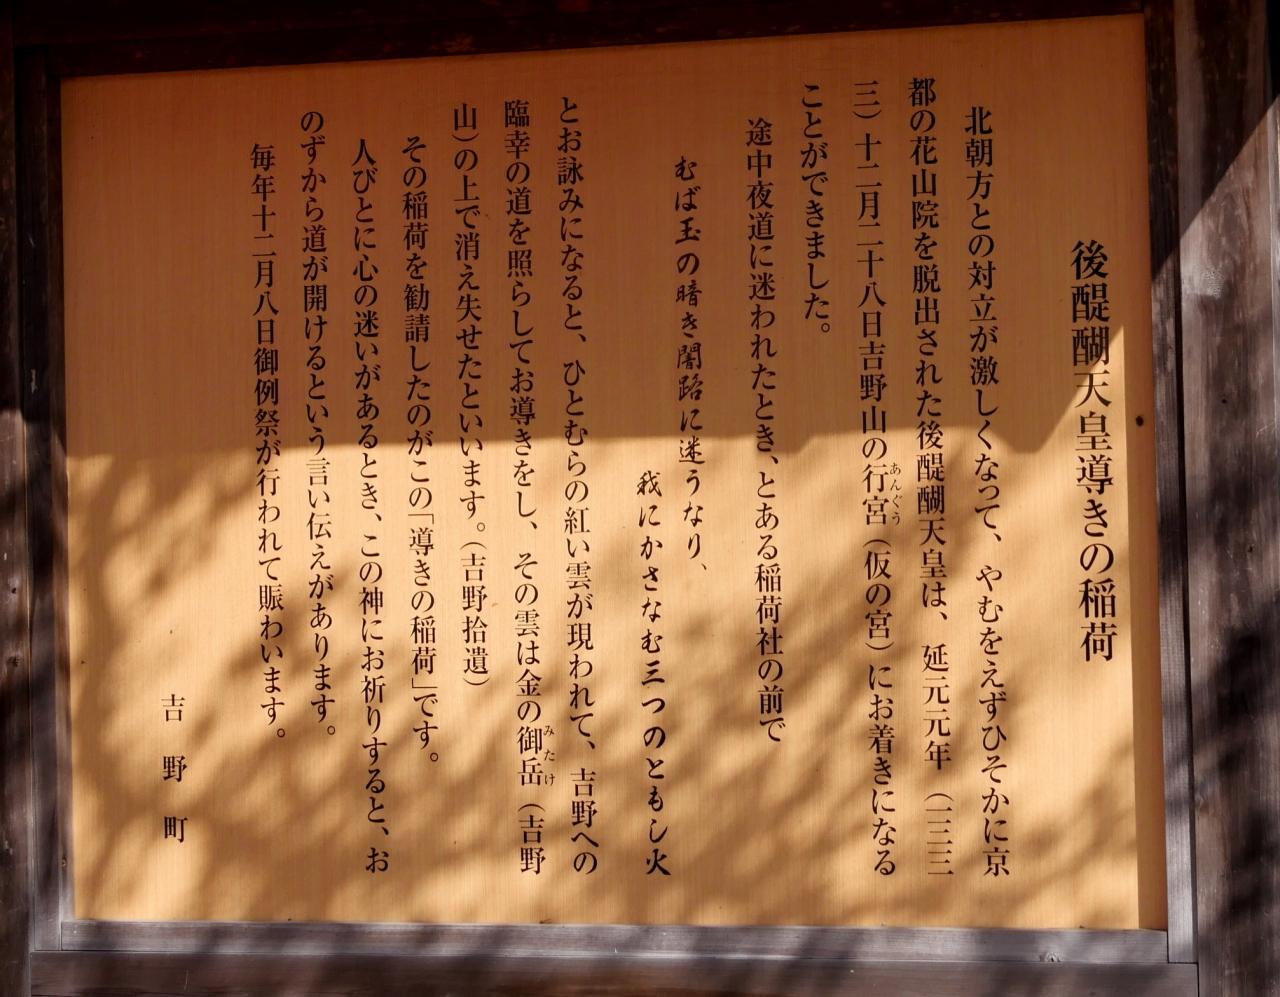 後醍醐天皇導きの稲荷
北朝方との対立が激しくなって、やむをえずひそかに京
都の花山院を脱出された後醍醐天皇は、延元元年（一三三
三）十二月二十八日吉野山の行宮（仮の宮）にお着きになる
あんぐう
ことができました。
途中夜道に迷われたとき、とある稲荷社の前で
むば玉の暗き闇路に迷うなり、
我にかさなむ三つのともし火
とお詠みになると、ひとむらの紅い雲が現われて、吉野への
臨幸の道を照らしてお導きをし、その雲は金の御岳（吉野
みたけ
山）の上で消え失せたといいます。（吉野拾遺）
その稲荷を勧請したのがこの「導きの稲荷」です。
人びとに心の迷いがあるとき、この神にお祈りすると、お
のずから道が開けるという言い伝えがあります。
毎年十二月八日御例祭が行われて賑わいます。
吉野町